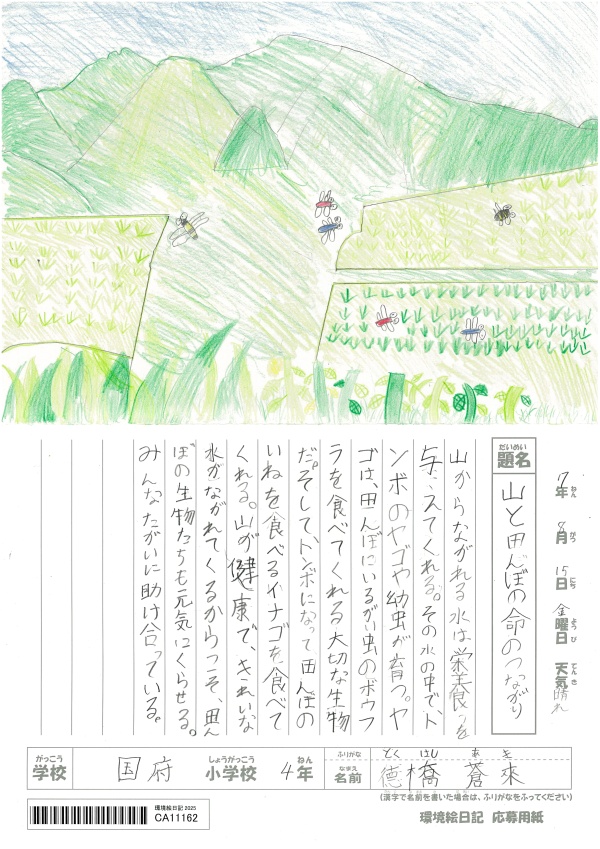 7年 8月 15日 金曜日 天気 晴れ
ねん がつ にち ようび てんき
だいめい
題名 山と田んぼの命のつながり
山からながれる水は栄養を
与えてくれる。その水の中で、ト
ンボのヤゴや幼虫が育つ。ヤ
ゴは、田んぼにいるがい虫のボウフ
ラを食べてくれる大切な生物
だ。そして、トンボになって、田んぼの
いねを食べるイナゴを食べて
くれる。山が健康で、きれいな
水がながれてくるからこそ、田ん
ぼの生物たちも元気にくらせる。
みんなたがいに助け合っている。
がっこう しょうがっこう ねん ふりがな とく はし あ き
学校 国府 小学校 4年 なまえ 名前 德橋 蒼來
(漢字で名前を書いた場合は、ふりがなをふってください)
環境絵日記 2025
CA11162
環境絵日記 応募用紙